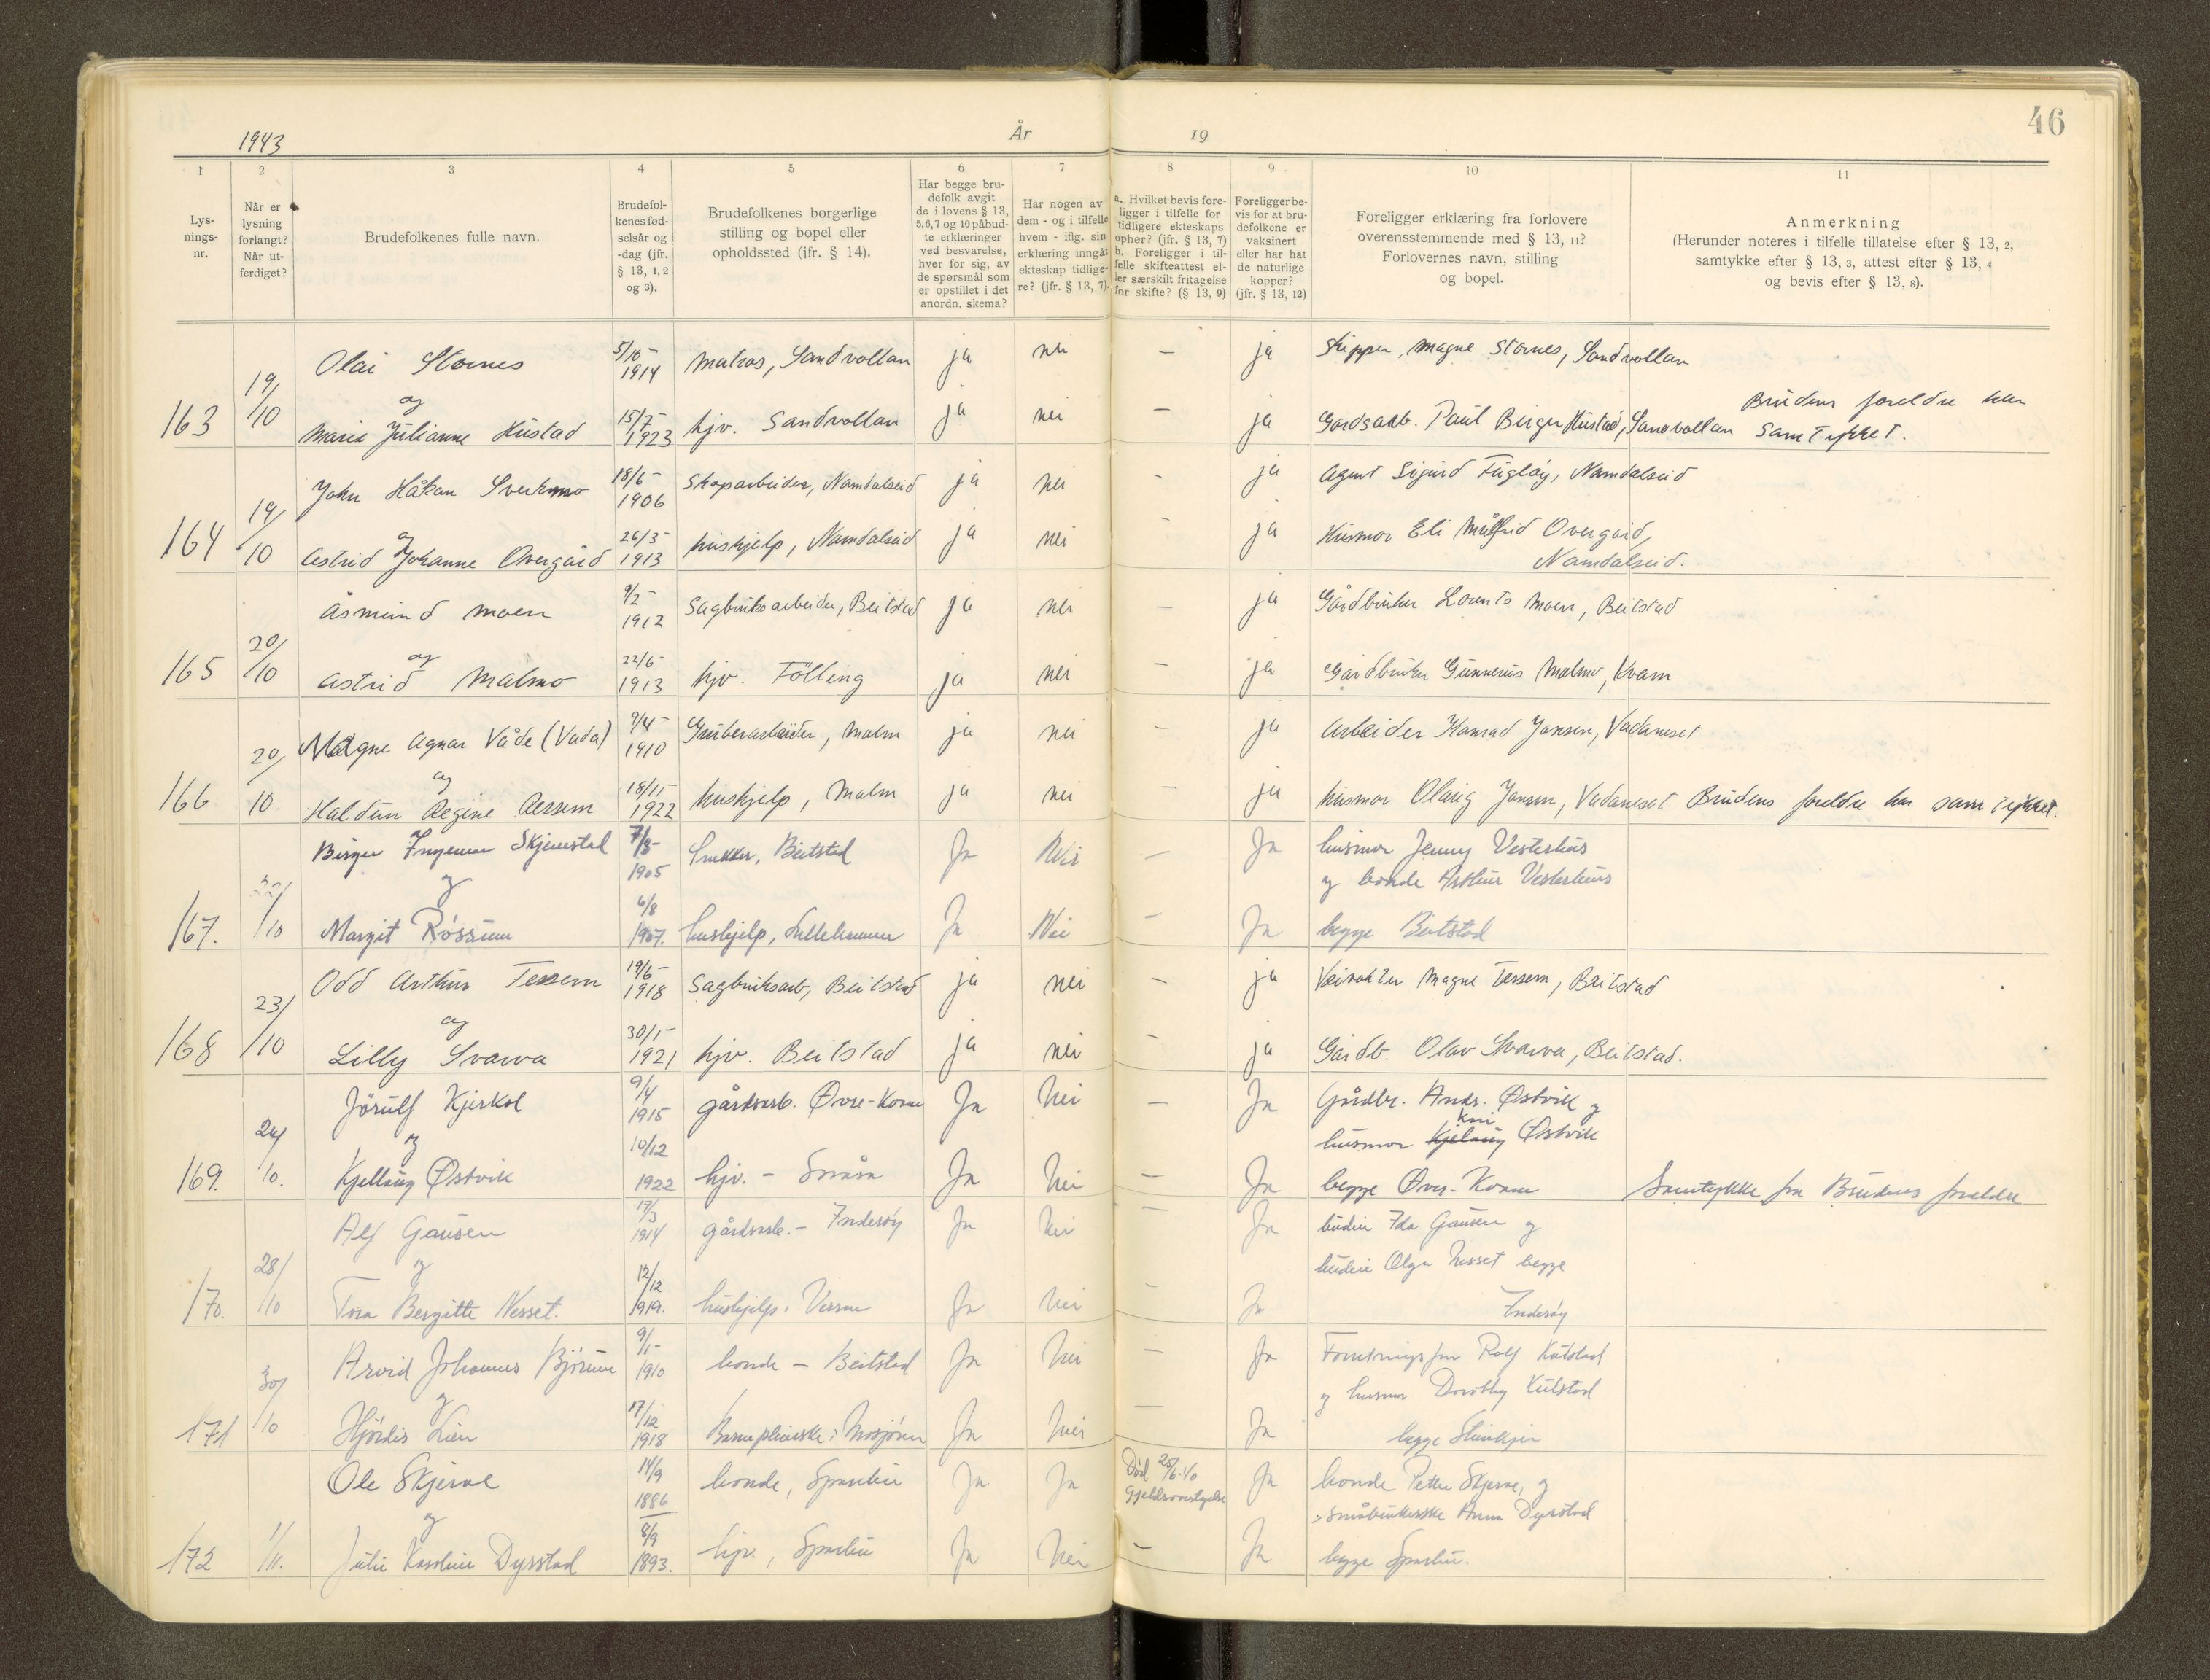 46
1943 År 19
1 2 3 4 5 6 7 8 9 10 11
Lys-
nings-
nr.
Når er
lysning
forlangt?
Når ut-
ferdiget?
Brudefolkenes fulle navn.
Brudefol-
kenes fød-
selsår og
-dag (jfr.
§ 13, 1, 2
og 3).
Brudefolkenes borgerlige
stilling og bopel eller
opholdssted (ifr. § 14).
Har begge bru-
defolk avgit
de i lovens § 13,
5,6,7 og 10 påbud-
te erklæringer
ved besvarelse,
hver for sig, av
de spørsmål som
er opstillet i det
anordn. skema?
Har nogen av
dem - og i tilfelle
hvem - iflg. sin
erklæring inngåt
ekteskap tidlige-
re? (jfr. § 13, 7).
a. Hvilket bevis fore-
ligger i tilfelle for
tidligere ekteskaps
ophør? (jfr. § 13, 7)
b. Foreligger i til-
felle skifteattest el-
ler særskilt fritagelse
for skifte? (§ 13, 9)
Foreligger be-
vis for at bru-
defolkene er
vaksinert
eller har hat
de naturlige
kopper?
(jfr. § 13, 12)
Foreligger erklæring fra forlovere
overensstemmende med § 13, 11?
Forlovernes navn, stilling
og bopel.
Anmerkning
(Herunder noteres i tilfelle tillatelse efter § 13, 2,
samtykke efter § 13, 3, attest efter § 13, 4
og bevis efter § 13, 8).
Olai Stornes 5/10- 1914 Matros, Sandvollan ja nei — ja Skipper, Magne Stornes, Sandvollan
og
163 19/10 Marie Julianne Hustad 15/7- 1923 hjv. Sandvollan ja nei — ja Gardsarb. Paul Birger Hustad, Sandvollan Brudens foreldre har
samtykket.
John Håkan Sverkmo 18/6- 1906 Skogarbeider, Namdalseid ja nei - ja Agent Sigurd Fugløy, Namdalseid
og
164 19/10 Astrid Johanne Overgård 26/3- 1913 Hushjelp, Namdalseid ja nei - ja Husmor Eli Målfrid Overgård,
Namdalseid.
Åsmund Moen 9/2- 1912 Sagbruksarbeider, Beitstad ja nei — ja Gårdbruker Lorents Moen, Beitstad
og
165 20/10 Astrid Malmo 22/6- 1913 hjv. Fölling ja nei — ja Gårdbruker Gunnerius Malmo, Kvam
Magne Agnar Våde (Vada) 9/4- 1910 Grubearbeider, Malm ja nei — ja Arbeider Konrad Jansen, Vadaneset
og
166 20/10 Haldun Regine Aessem 18/11- 1922 Hushjelp, Malm ja nei - ja Husmor Olaug Jansen, Vadaneset Brudens foreldre har samtykket.
Birger Ingemar Skjerrestad 7/3- 1905 Snekker, Beitstad Ja Nei — Ja husmor Jenny Vesterhus
og og bonde Arthur Vesterhus
167. 22/10 Margit Røssum 6/8 1907. hushjelp, Lillehammer Ja Nei — Ja begge Beitstad
Odd Arthur Tessem 19/6- 1918 Sagbruksarb, Beitstad ja nei - ja Veivokter Magne Tessem, Beitstad
og
168 23/10 Lilly Svarva 30/1- 1921 hjv. Beitstad ja nei - ja Gårdb. Olav Svarva, Beitstad.
Jörulf Kjerkol 9/4 1915 gårdsarb. Øvre-Kvam Ja Nei — Ja Gårdbr. Andr. Østvik og
og husmor Kjelaug Kari Østvik
169. 26/10. Kjellaug Østvik 10/12 1922 hjv. - Snåsa Ja Nei — Ja begge Øvre-Kvam Samtykke fra Brudens foreldre
Alf Gausen 17/3 1914 gårdsarb. - Inderøy Ja Nei — Ja budeie Ida Gausen og
og budeie Olga Nesset begge
170. 28/10 Tora Bergitte Nesset. 12/12 1919. hushjelp, Verran Ja Nei - Ja Inderøy
Arvid Johannes Bjørum 9/1- 1910 bonde - Beitstad Ja Nei — Ja Forretningsfør Rolf Külstad
og og husmor Dorothy Külstad
171 30/10 Hjördis Lien 17/12 1918 Barnepleierske, Mosjøen Ja Nei — Ja begge Steinkjer
Ole Skjerve 14/9 1886 bonde, Sparbu Ja Ja Død 25/6-40 Ja bonde Petter Skjerve, og
og Gjeldsovertagelse småbrukerske Anna Dyrstad
172 1/11. Julie Karoline Dyrstad 8/9 1893. hjv., Sparbu Ja Nei — Ja begge Sparbu.